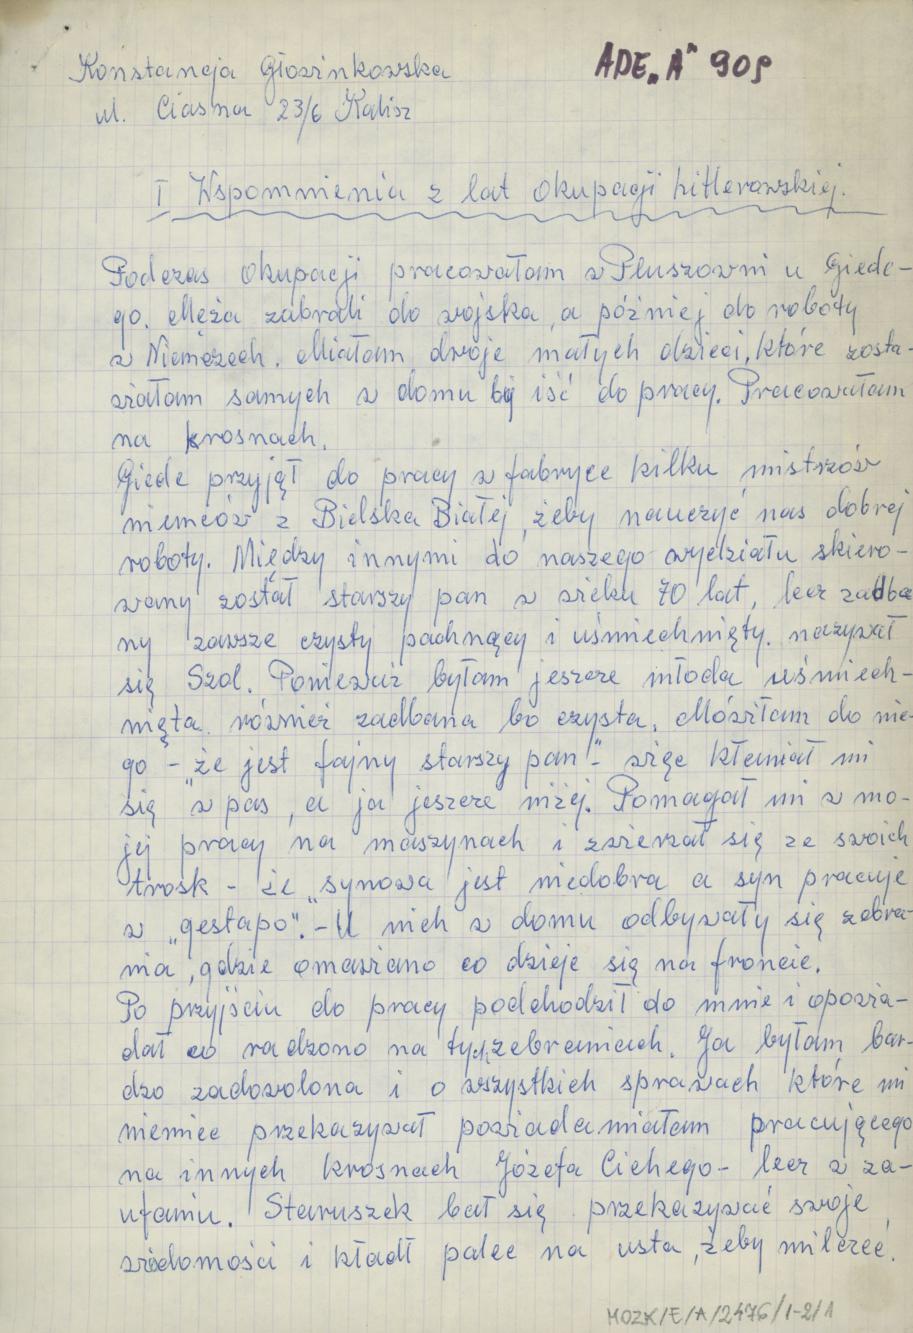 Konstancja Głowinkowska
ADE „A" 909
ul. Ciasna 23/6 Kalisz
I Wspomnienia z lat okupacji hitlerowskiej.
Podczas okupacji pracowałam w Pluszowni u Giede-
go. Męża zabrali do wojska, a później do roboty
w Niemczech. Miałam dwoje małych dzieci, które zosta-
wiałam samych w domu by iść do pracy. Pracowałam
na krosnach.
Giede przyjął do pracy w fabryce kilku mistrzów
niemców z Bielska Białej, żeby nauczyć nas dobrej
roboty. Między innymi do naszego wydziału skiero-
wany został starszy pan w wieku 70 lat, lecz zadba
ny zawsze czysty pachnący i uśmiechnięty. nazywał
się Szol. Ponieważ byłam jeszcze młoda uśmiech-
nięta również zadbana bo czysta. Mówiłam do nie-
go - „że jest fajny starszy pan" - więc kłaniał mi
się w pas, a ja jeszcze niżej. Pomagał mi w mo-
jej pracy na maszynach i zwierzał się ze swoich
trosk - że „synowa jest niedobra a syn pracuje
w „gestapo". - U nich w domu odbywały się zebra-
nia, gdzie omawiano co dzieje się na froncie.
Po przyjściu do pracy podchodził do mnie i opowia-
dał co radzono na tych zebraniach. Ja byłam bar-
dzo zadowolona i o wszystkich sprawach które mi
niemiec przekazywał powiadamiałam pracującego
na innych krosnach Józefa Cichego - lecz w za-
ufaniu. Staruszek bał się przekazywać swoje
wiadomości i kładł palec na usta, żeby milczeć.
MOZK/E/A/2476/1-2/1